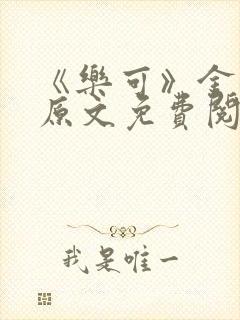 《樂可》金
原文免費閱
我是唯一